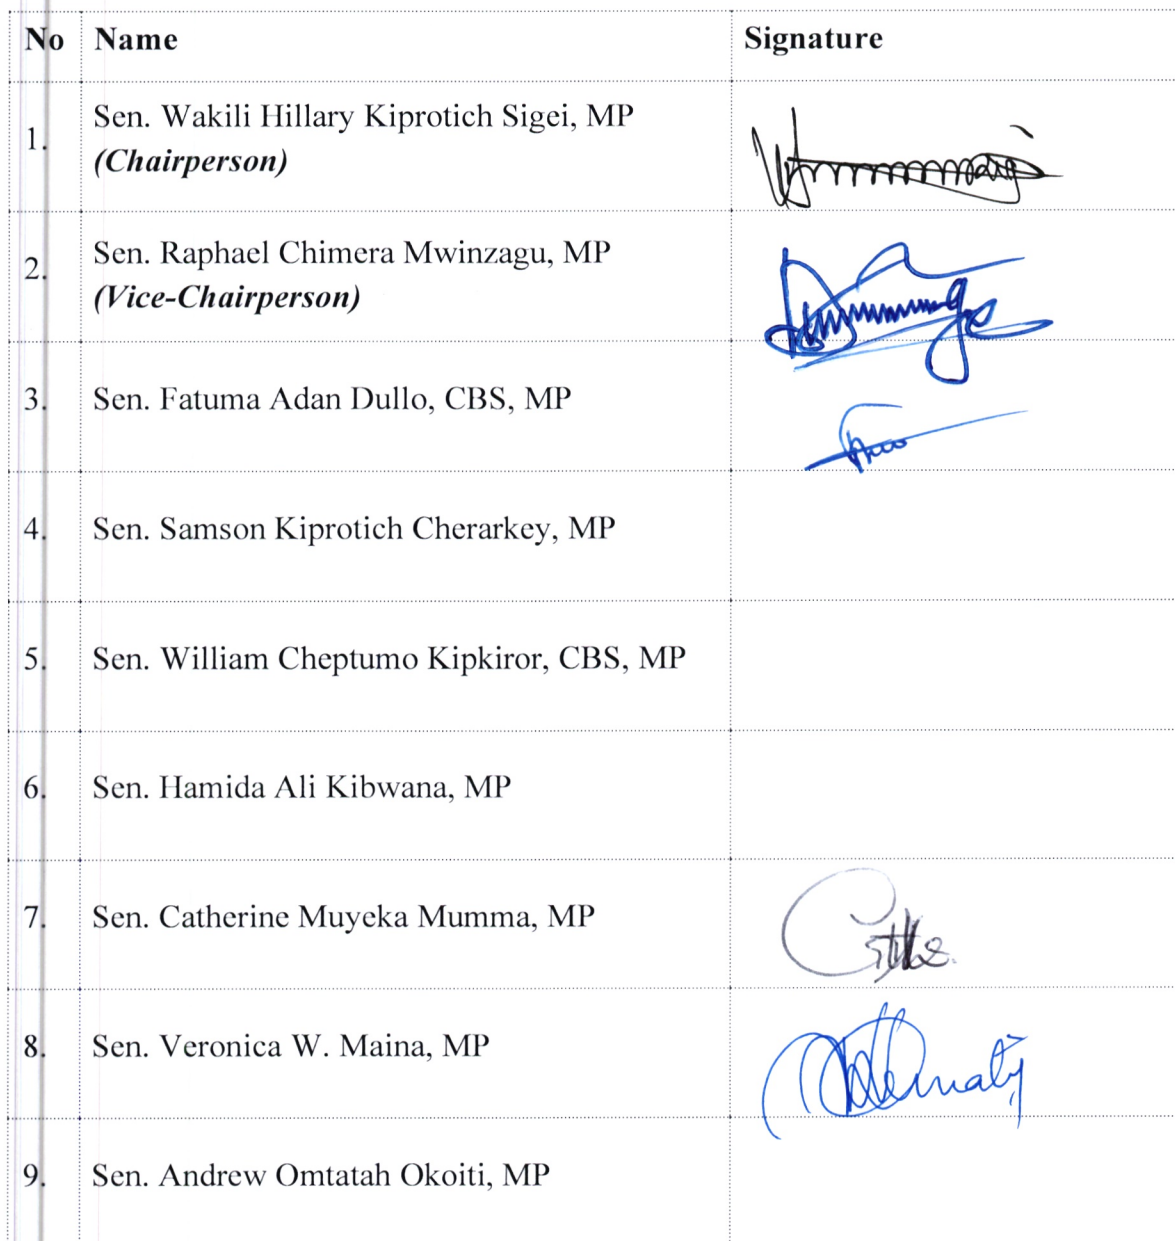 No Name Signature
1. Sen. Wakili Hillary Kiprotich Sigei, MP
(Chairperson)
2. Sen. Raphael Chimera Mwinzagu, MP
(Vice-Chairperson)
3. Sen. Fatuma Adan Dullo, CBS, MP
4. Sen. Samson Kiprotich Cherarkey, MP
5. Sen. William Cheptumo Kipkiror, CBS, MP
6. Sen. Hamida Ali Kibwana, MP
7. Sen. Catherine Muyeka Mumma, MP
8. Sen. Veronica W. Maina, MP
9. Sen. Andrew Omtatah Okoiti, MP